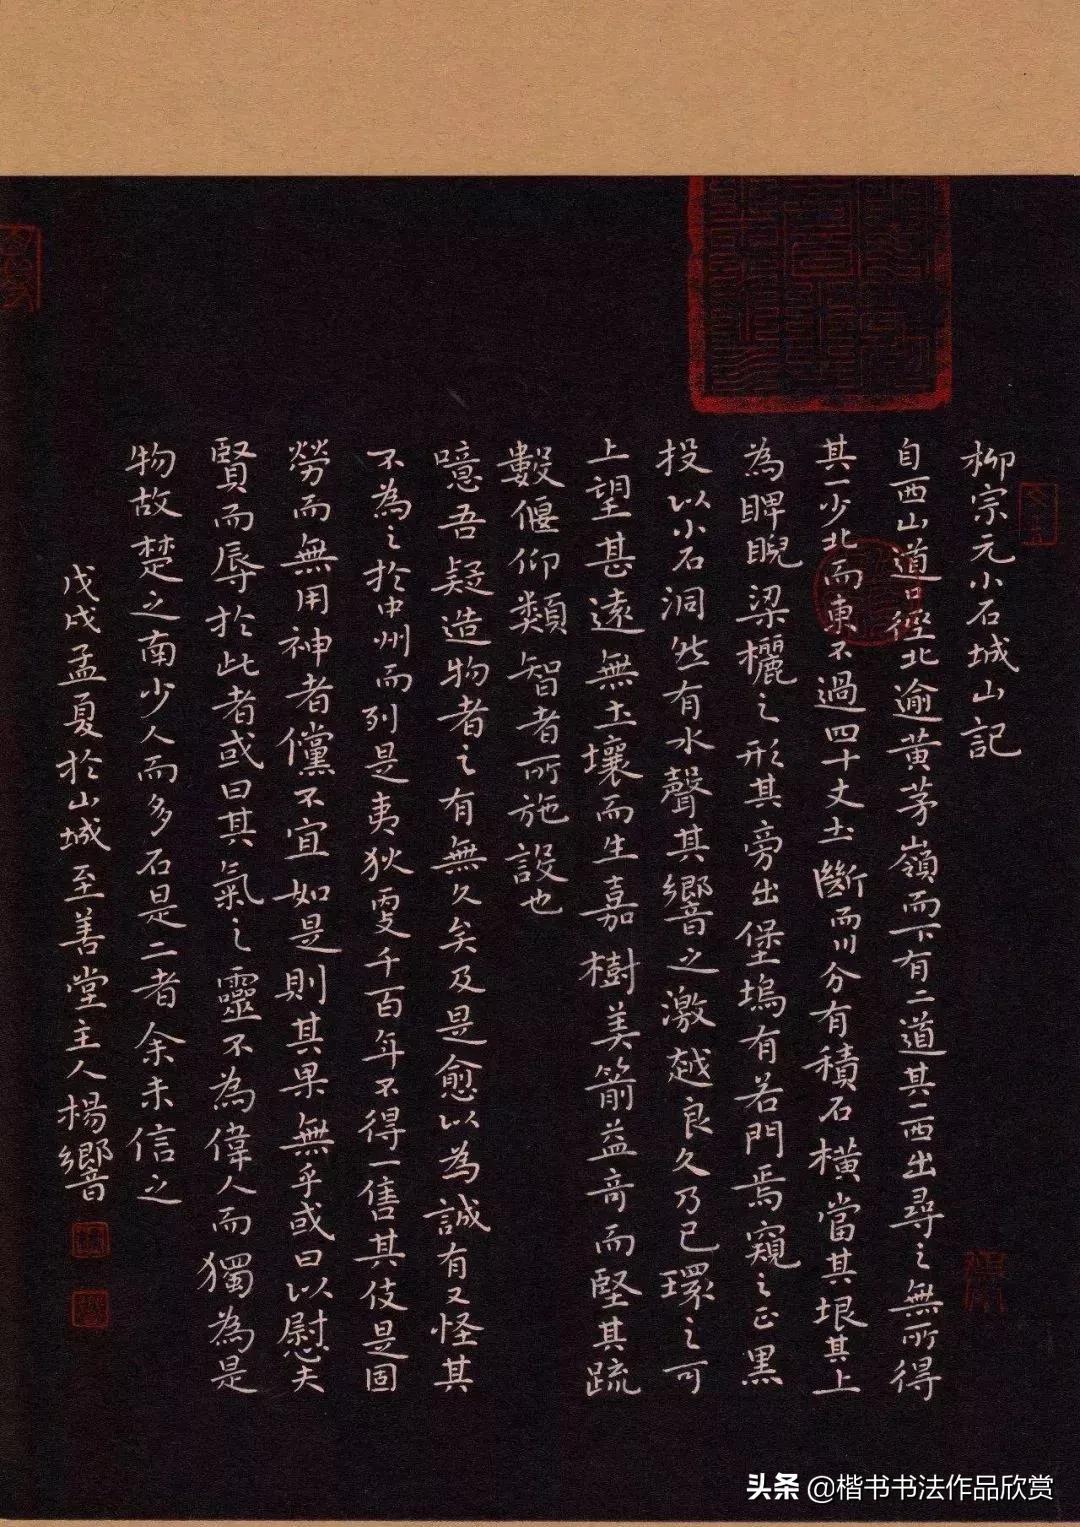 柳宗元小石城山記
自西山道口徑北逾黃茅嶺而下有二道其一西出尋之無所得
其一少北而東不過四十丈土斷而川分有積石橫當其垠其上
為睥睨梁欐之形其旁出堡塢有若門焉窺之正黑
投以小石洞然有水聲其響之激越良久乃已環之可
上望甚遠無土壤而生嘉樹美箭益奇而堅其疏
數偃仰類智者所施設也
噫吾疑造物者之有無久矣及是愈以為誠有又怪其
不為之於中州而列是夷狄更千百年不得一售其伎是固
勞而無用神者儻不宜如是則其果無乎或曰以慰夫
賢而辱於此者或曰其氣之靈不為偉人而獨為是
物故楚之南少人而多石是二者余未信之
戊戌孟夏於山城至善堂主人楊響
头条@楷书书法作品欣赏